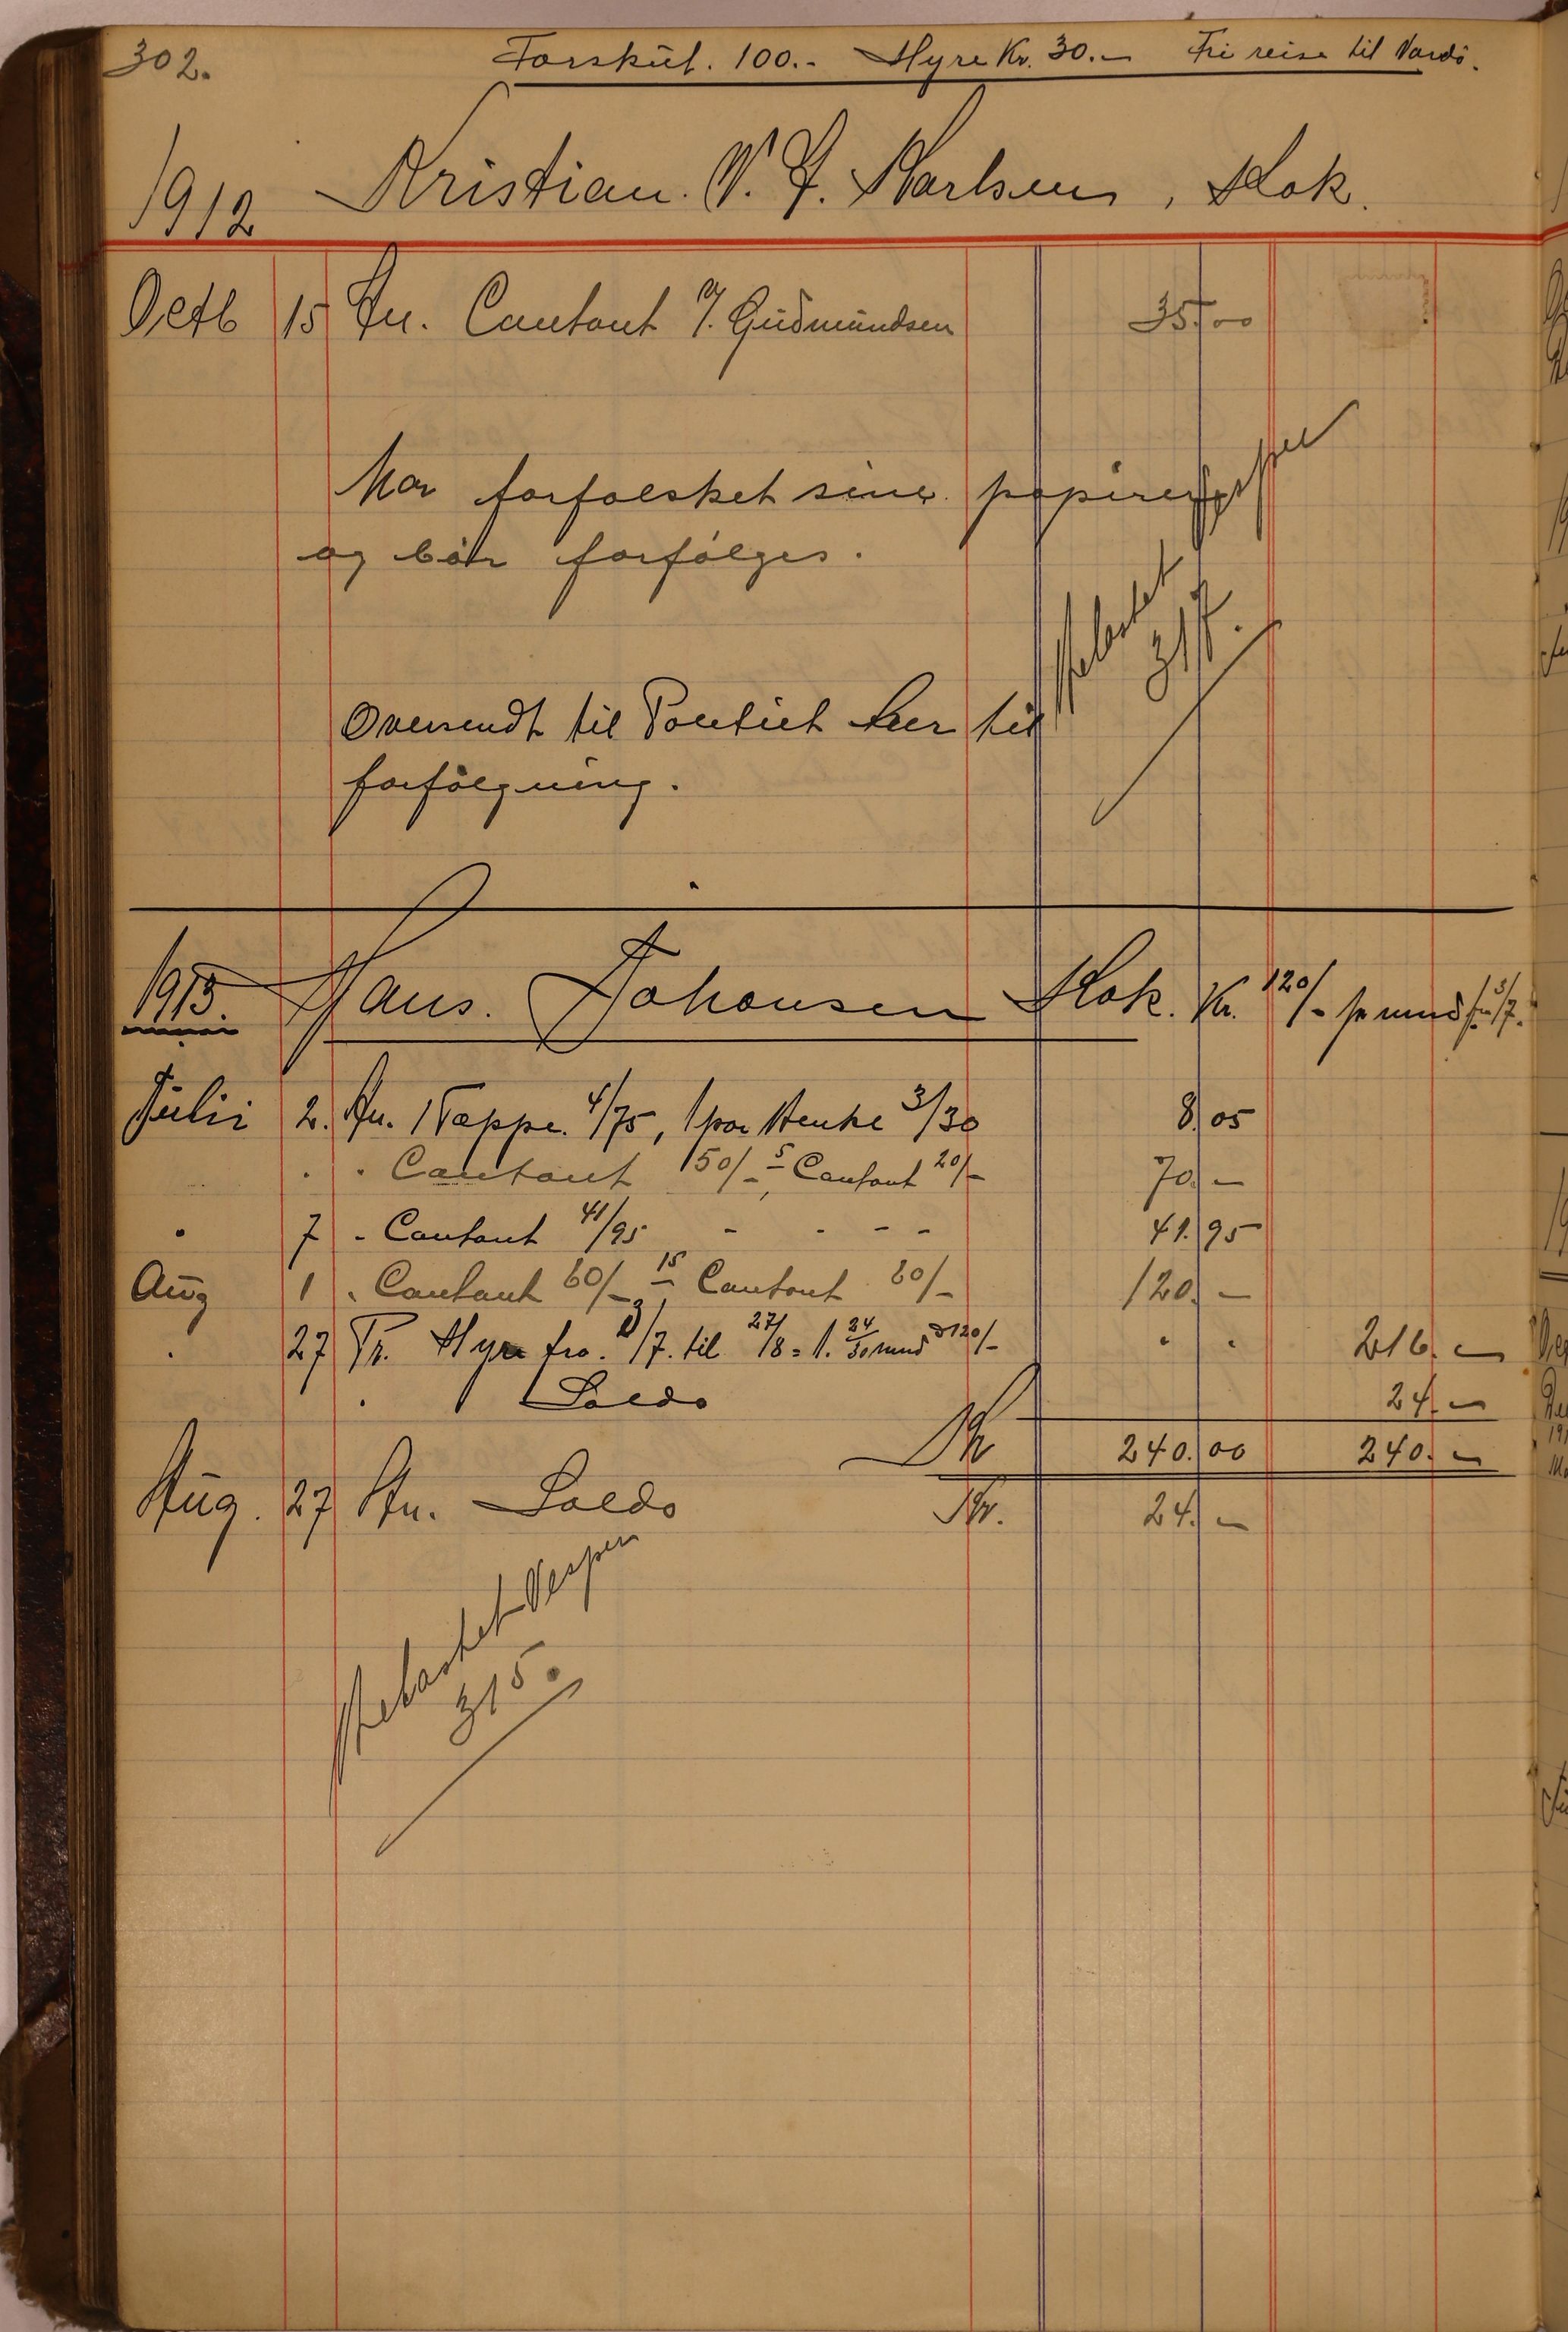 302. Forskūt. 100.- Hyre Kr. 30.- Fri reise til Vardö.
1912 Kristian. W. F. Karlsen, Kok.
Octb 15 An. Contant Gūdmūndsen 35.00
Har forfalsket sine papirer
og bör forfölges.
Pebastet
315.
Oversendt til Politiet her til
forfölgning.
1913. Hans. Johansen Kok. Kr. 120/- pr mnd 3/7.
Jūlii 2. An. 1 Tæppe. 4/75, 1 par 3/30 8.05
. . Contant 50/- 5 Contant 20/- 70.-
. 7 - Contant 41/95 - - - - 41.95
Aūg 1 . Contant 60/- 15 Contant 60/- 120.-
. 27 Pr. Hyre fra. 3/7. til 27/8 = 1. 24/30 mnd à 120/- . . 216.-
. Saldo 24.-
Kr 240.00 240.-
Aūg. 27 An. Saldo Kr. 24.-
315.